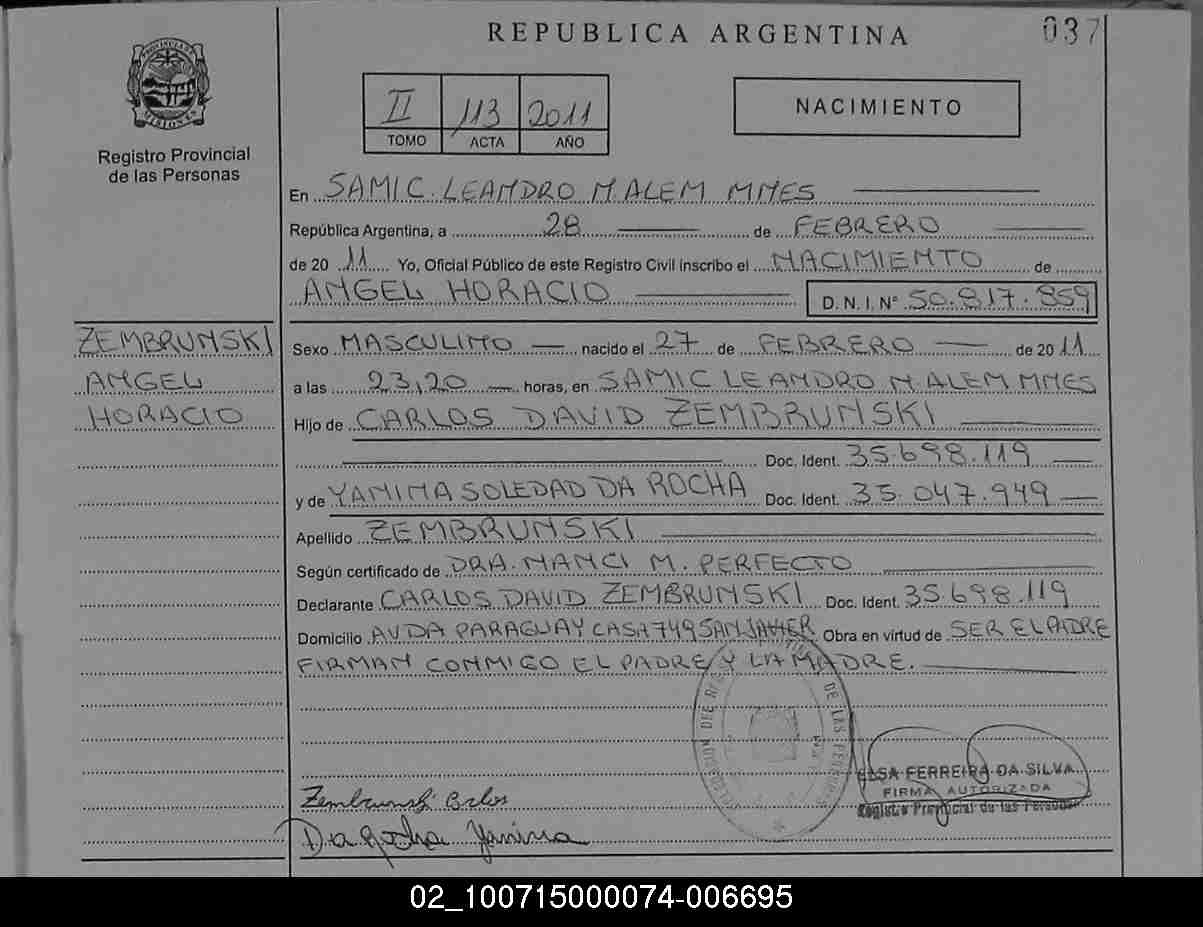 REPUBLICA ARGENTINA
037
PROVINCIA DE
MISIONES
Registro Provincial
de las Personas
II 113 2011
TOMO ACTA AÑO
NACIMIENTO
En SAMIC LEANDRO N. ALEM MNES
República Argentina, a 28 de FEBRERO
de 20 11 Yo, Oficial Público de este Registro Civil inscribo el NACIMIENTO de
ANGEL HORACIO D. N. I. Nº 50.817.859
ZEMBRUNSKI
ANGEL
HORACIO
Sexo MASCULINO nacido el 27 de FEBRERO de 20 11
a las 23,20 horas, en SAMIC LEANDRO N. ALEM MNES
Hijo de CARLOS DAVID ZEMBRUNSKI
Doc. Ident. 35.698.119
y de YANINA SOLEDAD DA ROCHA Doc. Ident. 35.047.949
Apellido ZEMBRUNSKI
Según certificado de DRA. NANCI M. PERFECTO
Declarante CARLOS DAVID ZEMBRUNSKI Doc. Ident. 35.698.119
Domicilio AVDA PARAGUAY CASA 749 SAN JAVIER Obra en virtud de SER EL PADRE
FIRMAN CONMIGO EL PADRE Y LA MADRE.
DE LAS PERSONAS
ELSA FERREIRA DA SILVA
FIRMA AUTORIZADA
Registro Provincial de las Personas
Zembrunski Carlos
Da Rocha Yanina
02_100715000074-006695